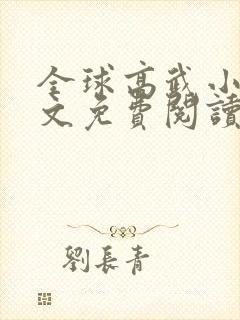 全球高武小
文免費閱讀
劉長青